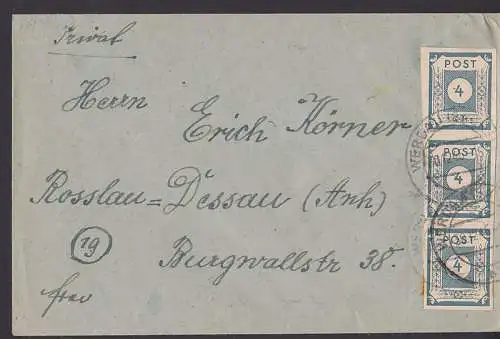 Privat
Herrn
Erich Körner
Rosslau-Dessau (Anh)
19
Burgwallstr 38.
frei
POST
4
POST
4
POST
4